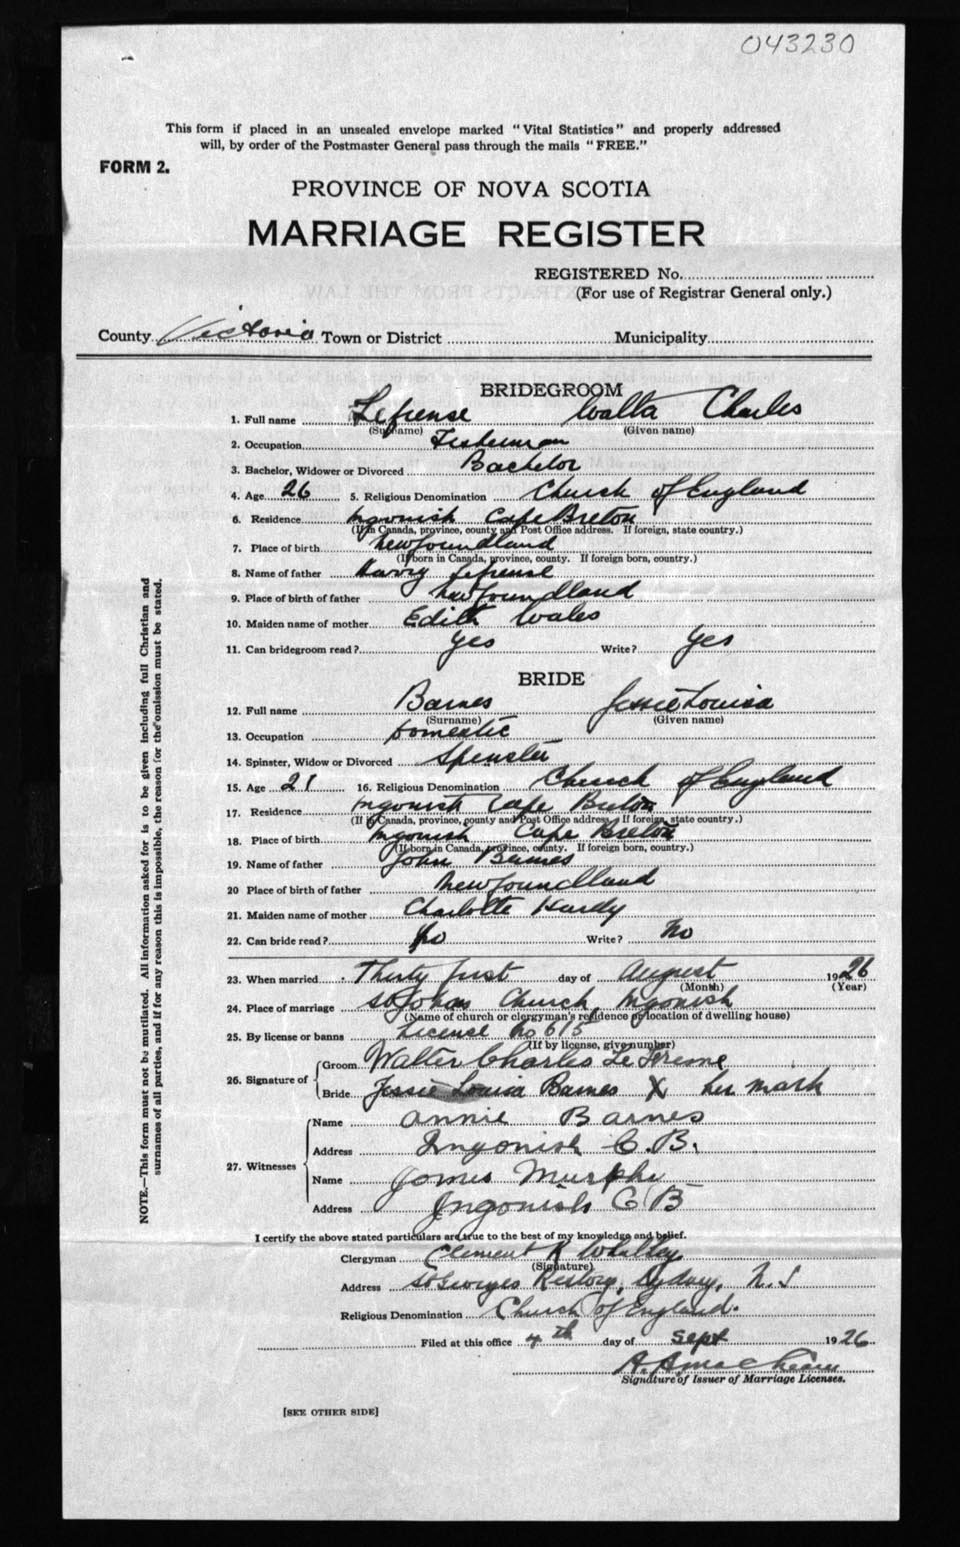 043230
This form if placed in an unsealed envelope marked "Vital Statistics" and properly addressed
will, by order of the Postmaster General pass through the mails "FREE."
FORM 2.
PROVINCE OF NOVA SCOTIA
MARRIAGE REGISTER
REGISTERED No.
(For use of Registrar General only.)
County Victoria Town or District Municipality
BRIDEGROOM
1. Full name Lefrense Walta Charles
(Surname) (Given name)
2. Occupation Fisherman
3. Bachelor, Widower or Divorced Bachelor
4. Age 26 5. Religious Denomination Church of England
6. Residence Ingonish Cape Breton
(If in Canada, province, county and Post Office address. If foreign, state country.)
7. Place of birth Newfoundland
(If born in Canada, province, county. If foreign born, country.)
8. Name of father Harry Lefrense
9. Place of birth of father Newfoundland
10. Maiden name of mother Edith Wales
11. Can bridegroom read? Yes Write? Yes
BRIDE
12. Full name Barnes Jessie Louisa
(Surname) (Given name)
13. Occupation Domestic
14. Spinster, Widow or Divorced Spenster
15. Age 21 16. Religious Denomination Church of England
17. Residence Ingonish Cape Breton
(If in Canada, province, county and Post Office address. If foreign, state country.)
18. Place of birth Ingonish Cape Breton
(If born in Canada, province, county. If foreign born, country.)
19. Name of father John Barnes
20 Place of birth of father Newfoundland
21. Maiden name of mother Charlotte Hardy
22. Can bride read? No Write? No
23. When married Thirty first day of August 1926
(Month) (Year)
24. Place of marriage St Johns Church Ingonish
(Name of church or clergyman's residence or location of dwelling house)
25. By license or banns License No 615
(If by license, give number)
26. Signature of Groom Walter Charles Le Freme
Bride Jessie Louisa Barnes X her mark
27. Witnesses Name Annie Barnes
Address Ingonish C.B.
Name James Murphy
Address Ingonish C B
I certify the above stated particulars are true to the best of my knowledge and belief.
Clergyman Clement K Whalley
(Signature)
Address St Georges Rectory, Sydney, N.S
Religious Denomination Church of England.
Filed at this office 4th day of Sept 1926
Signature of Issuer of Marriage Licenses.
[SEE OTHER SIDE]
NOTE.—This form must not be mutilated. All information asked for is to be given including full Christian and
surnames of all parties, and if for any reason this is impossible, the reason for the omission must be stated.